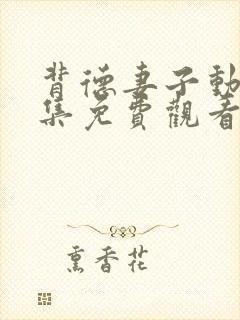 背德妻子動
集免費觀看
熏香花